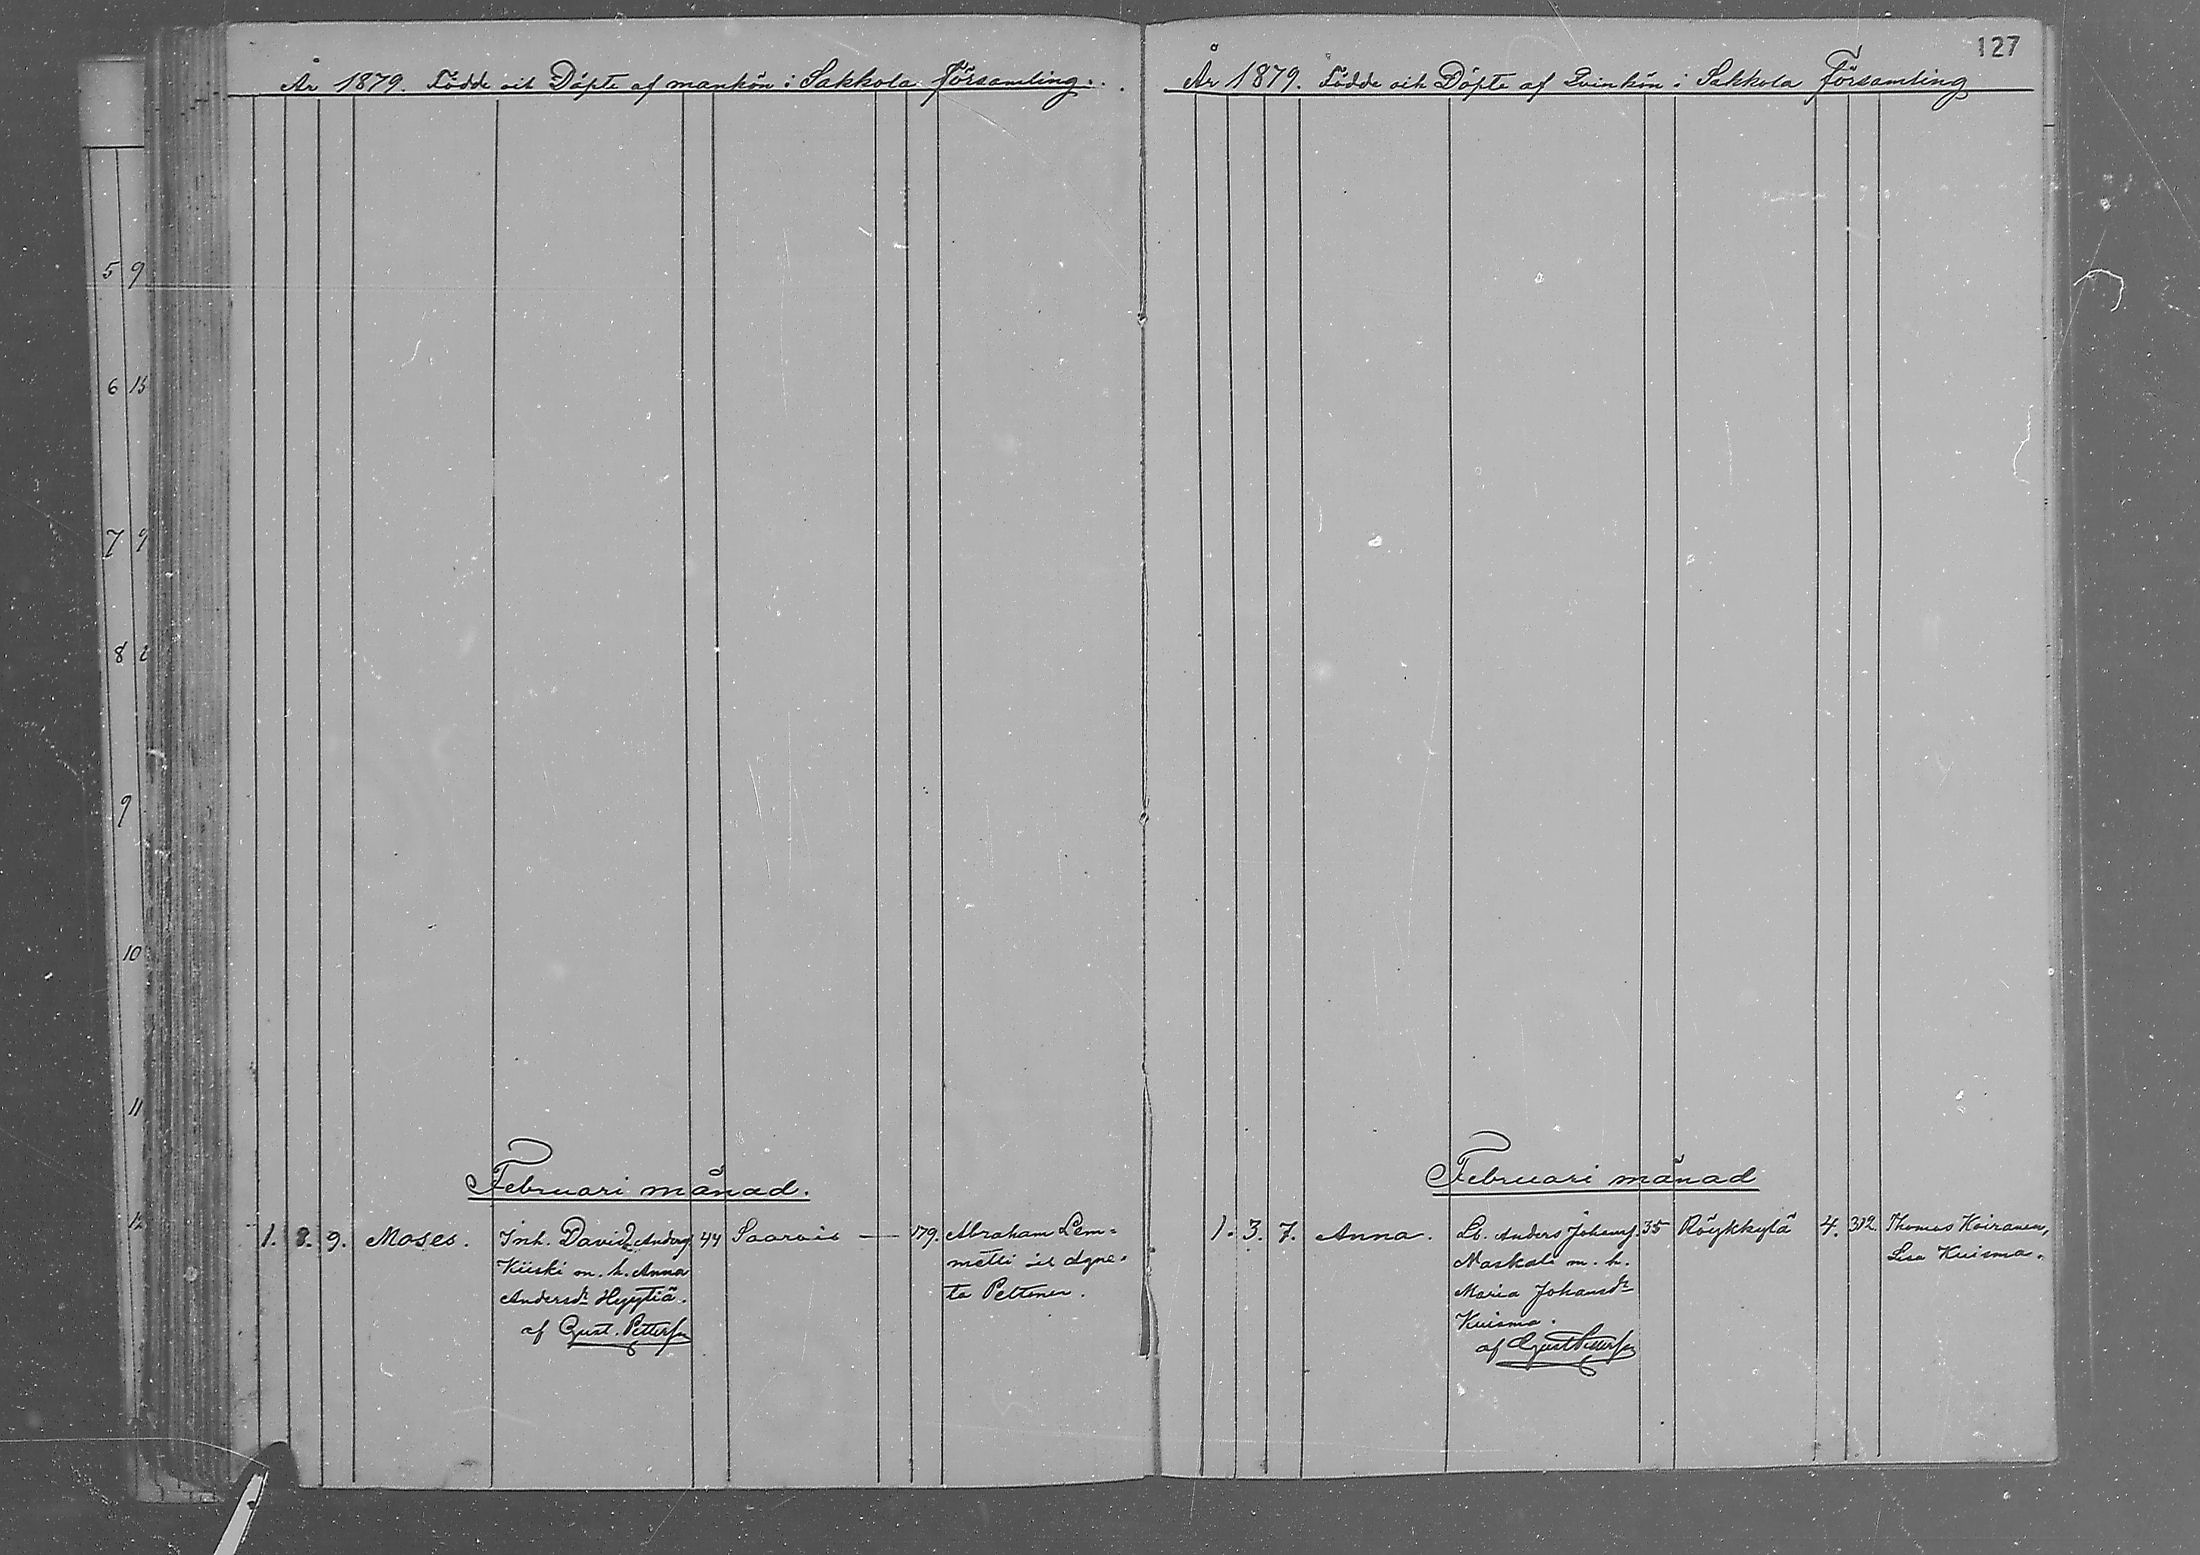 År 1879. Födde och Döpte af mankön i Sakkola Församling.
Februari månad.
1. 8. 9. Moses. Inh. David Anders. 44 Saarois — 179. Abraham Lem=
Kiiski m. h. Anna metti och Agne=
Andersdr Hyytiä. ta Peltonen.
af Gust. Petterson
127
År 1879. Födde och Döpte af Qvinkön i Sakkola Församling
Februari månad
1. 3. 7. Anna. Lb. Anders Johans. 35 Röykkylä 4. 312. Thomas Koiranen,
Naskali m. h. Lisa Kuisma.
Maria Johansdr
Kuisma.
af Gust Petterson
5 9
6 15
7 9
8
9
10
11
12